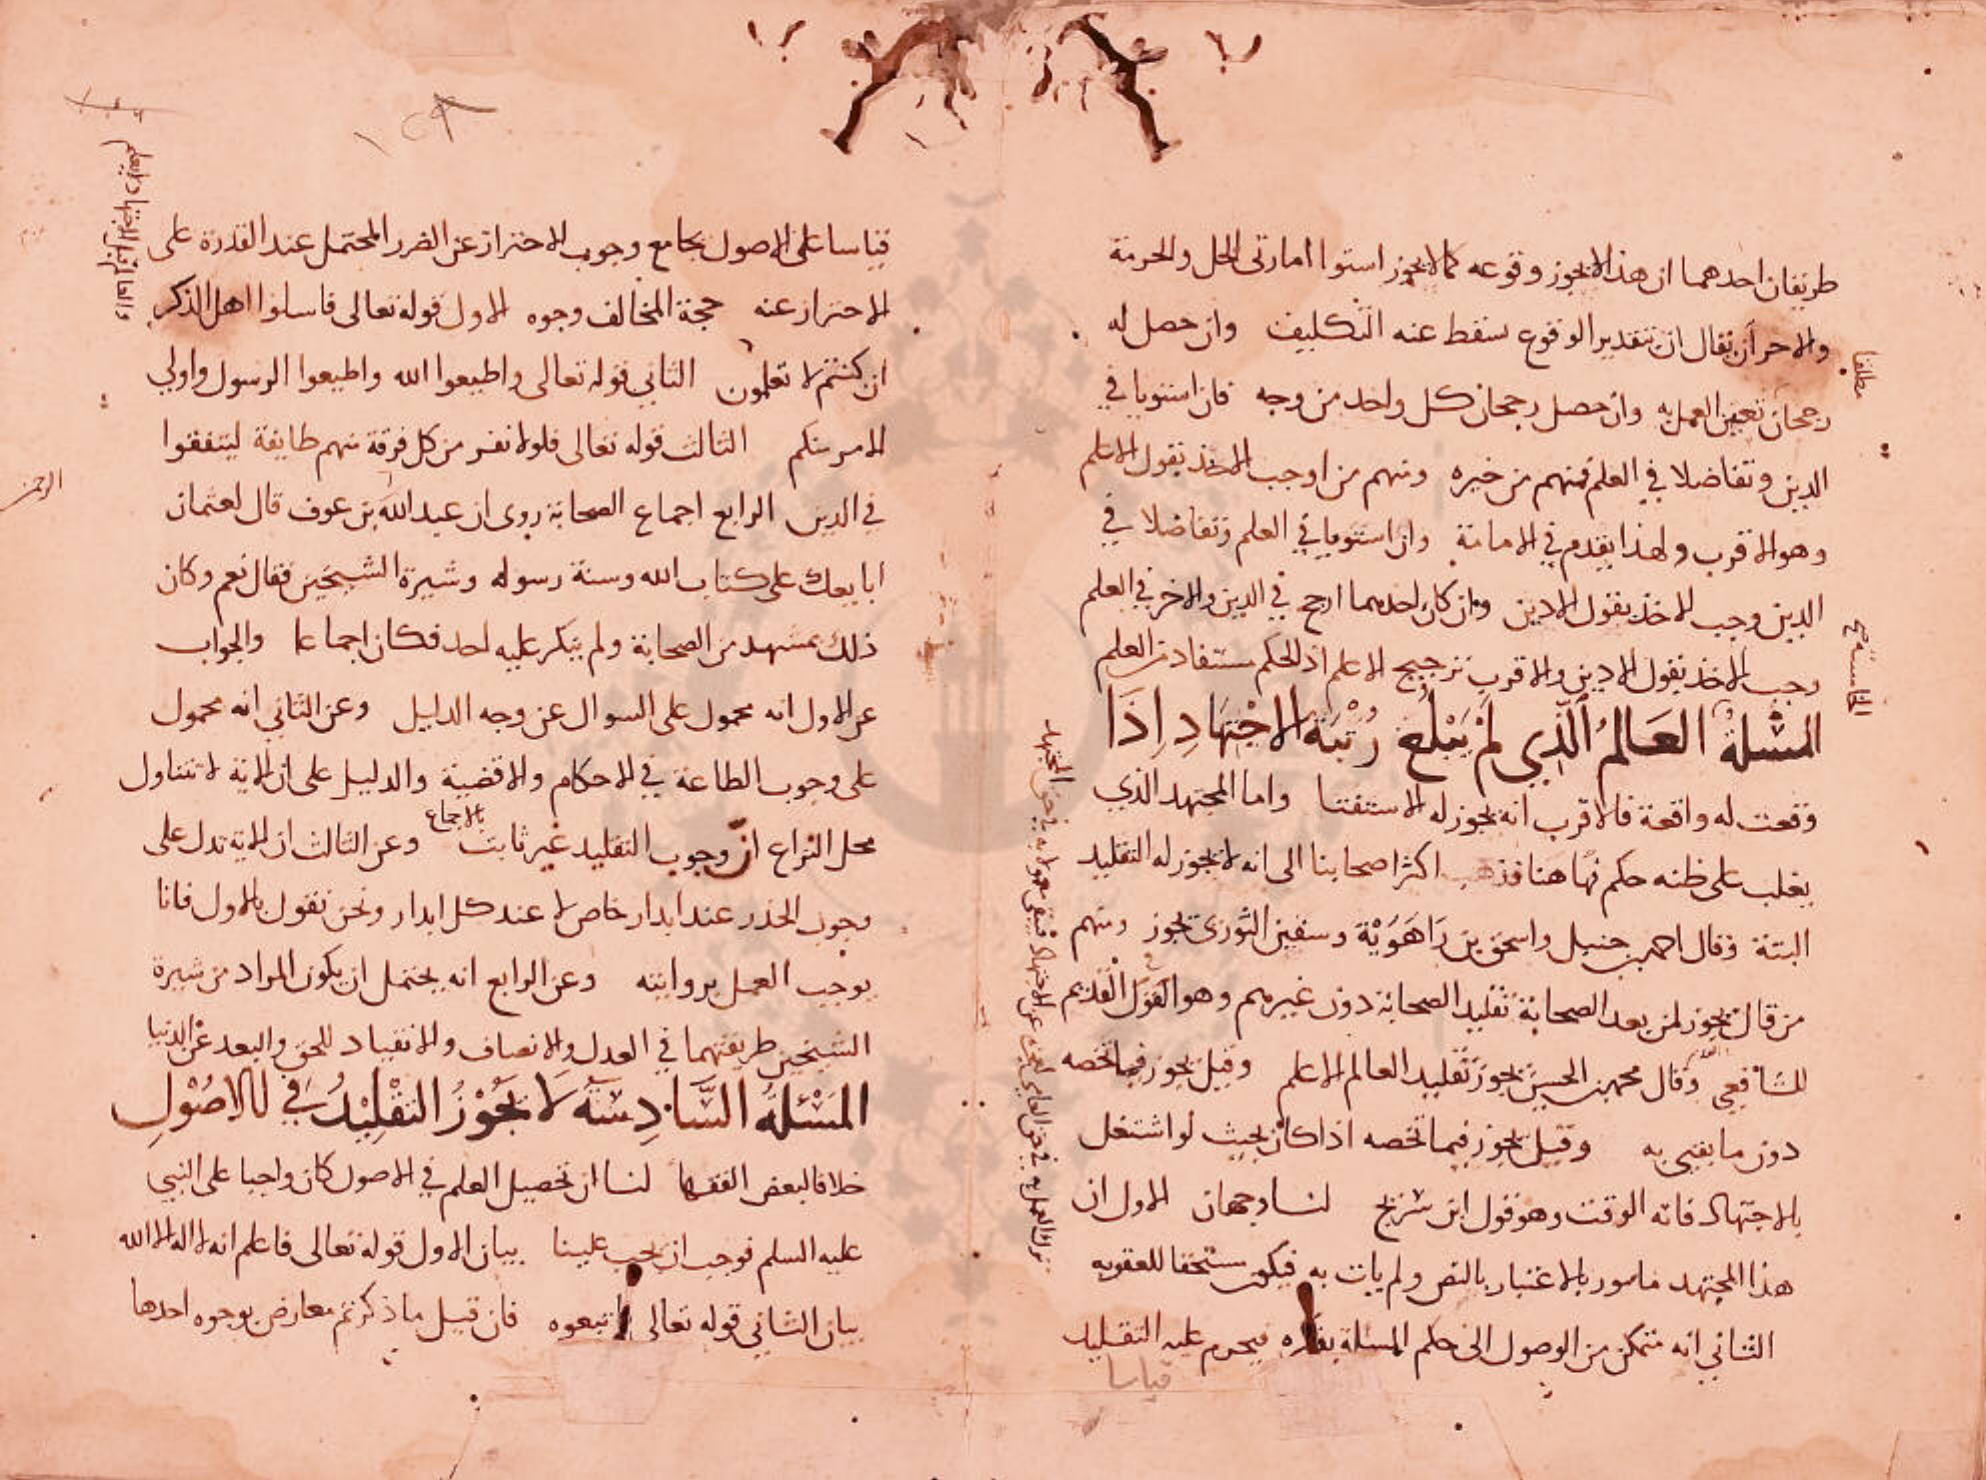 طريقان احدهما ان هذا لا يجوز وقوعه كما لا يجوز استوا امارتى الحل والحرمة
والاخر ان يقال ان بتقدير الوقوع سقط عنه التكليف وان حصل له
رجحان تعين العمل به وان حصل رجحان كل واحد من وجه فان استويا في
الدين وتفاضلا في العلم فمنهم من خيره ومنهم من اوجب الاخذ بقول الاعلم
وهو الاقرب ولهذا يقدم في الامامة وان استويا في العلم وتفاضلا في
الدين وجب الاخذ بقول الادين وان كان احدهما ارجح في الدين والاخر في العلم
وجب الاخذ بقول الادين والاقرب ترجيح الاعلم اذ الحكم مستفاد من العلم
المسْلةُ العَالمُ الَّذِي لَمْ يَبْلُغْ رُتْبَةَ الاجْتِهَادِ اِذَا
وقعت له واقعة فالاقرب انه يجوز له الاستفتا واما المجتهد الذي
يغلب على ظنه حكم فهاهنا فذهب اكثر اصحابنا الى انه لا يجوز له التقليد
البتة وقال احمد بن حنبل واسحق بن رَاهَوَيْة وسفين الثورى يجوز ومنهم
من قال يجوز لمن بعد الصحابة تقليد الصحابة دون غيرهم وهو القول القديم
للشافعي وقال محمد بن الحسن يجوز تقليد العالم الاعلم وقيل يجوز فيما تخصه
دون ما يفتى به وقيل يجوز فيما تخصه اذا كان بحيث لو اشتغل
بالاجتهاد فاته الوقت وهو قول ابن سريج لنا وجهان الاول ان
هذا المجتهد مامور بالاعتبار بالنص ولم يات به فيكون مستحقا للعقوبه
الثاني انه متمكن من الوصول الى حكم المسلة بفكره فيحرم عليه التقليد
قياسا
مطلقا
الخامسة صح
ترك العمل به في حق العامي لعجزه عن الاجتهاد فيبقى معمولا به في حق المجتهد
١٥٨
قياسا على الاصول بجامع وجوب الاحتراز عن الضرر المحتمل عند القدرة على
الاحتراز عنه حجة المخالف وجوه الاول قوله تعالى فاسلوا اهل الذكر
ان كنتم لا تعلمون الثاني قوله تعالى واطيعوا الله واطيعوا الرسول واولي
الامر منكم الثالث قوله تعالى فلولا نفر من كل فرقة منهم طايفة ليتفقهوا
في الدين الرابع اجماع الصحابة روى ان عبد الله بن عوف قال لعثمان
ابايعك على كتاب الله وسنة رسوله وسيرة الشيخين فقال نعم وكان
ذلك بمشهد من الصحابة ولم ينكر عليه احد فكان اجماعا والجواب
عن الاول انه محمول على السوال عن وجه الدليل وعن الثاني انه محمول
على وجوب الطاعة في الاحكام والاقضية والدليل على ان الاية لا تتناول
محل النزاع انّ وجوب التقليد غير ثابت بالاجماع وعن الثالث ان الاية تدل على
وجوب الحذر عند انذار خاص لا عند كل انذار ونحن نقول بالاول فانا
نوجب العمل بروايته وعن الرابع انه يحتمل ان يكون المراد من سيرة
الشيخين طريقتهما في العدل والانصاف والانقياد للحق والبعد عن الدنيا
المَسْئلةُ السَّادِسَةُ لَا يَجُوْزُ التَقْلِيْدُ في الاصُوْلِ
خلافا لبعض الفقها لنا ان تحصيل العلم في الاصول كان واجبا على النبي
عليه السلم فوجب ان يجب علينا بيان الاول قوله تعالى فاعلم انه لا اله الا الله
بيان الثاني قوله تعالى اتبعوه فان قيل ما ذكرتم معارض بوجوه احدها
الرحمن